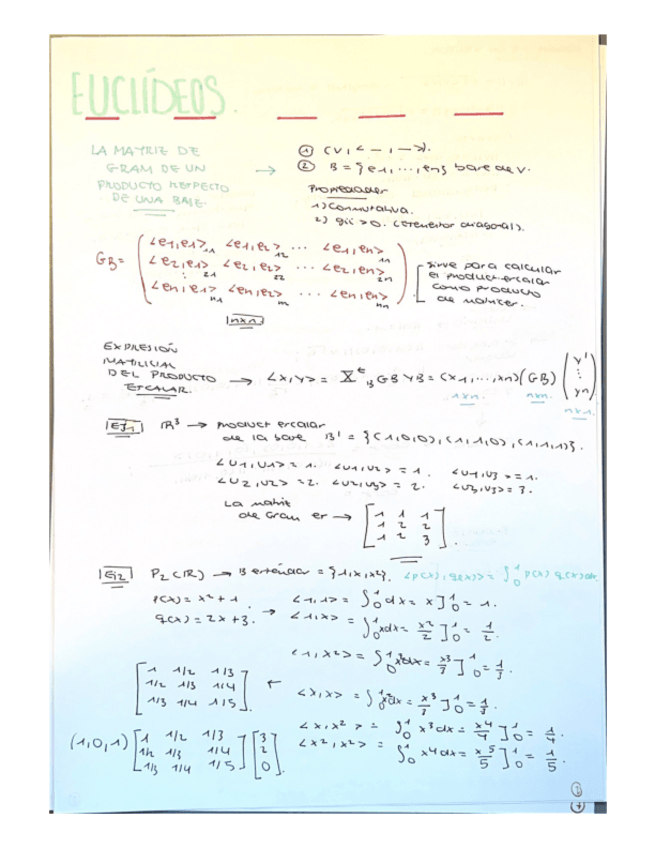 EUCLÍDEOS.
LA MATRIZ DE
GRAM DE UN
PRODUCTO RESPECTO
DE UNA BASE.
→
① (V, < - , - >).
② B = {e1, ..., en} base de V.
Propiedades
1) Conmutativa.
2) gii > 0. (elementos diagonal).
GB = ( <e1,e1>11 <e1,e2>12 ... <e1,en>
<e2,e1>21 <e2,e2>22 ... <e2,en>2n
<en,e1>n1 <en,e2> ... <en,en>nn )
nxn
sirve para calcular
el product escalar
como producto
de matrices.
EXPRESIÓN
MATRICIAL
DEL PRODUCTO
ESCALAR.
→ <x,y> = X^t B GB YB = (x1, ..., xn) (GB) (y1 ⋮ yn)
1xn. nxn. nx1.
EJ1 R³ → product escalar
de la base B' = {(1,0,0), (1,1,0), (1,1,1)}.
<u1,u1> = 1. <u1,u2> = 1. <u1,u3> = 1.
<u2,u2> = 2. <u2,u3> = 2. <u3,u3> = 3.
La matriz
de Gram es →
[1 1 1
1 2 2
1 2 3].
Ej2 P2(R) → B estándar = {1,x,x²}. <p(x),q(x)> = ∫₀¹ p(x) q(x) dx.
p(x) = x² + 1
q(x) = 2x + 3.
→ <1,1> = ∫₀¹ dx = x]₀¹ = 1.
<1,x> = ∫₀¹ xdx = x²/2]₀¹ = 1/2.
<1,x²> = ∫₀¹ x²dx = x³/3]₀¹ = 1/3.
[1 1/2 1/3
1/2 1/3 1/4
1/3 1/4 1/5]
← <x,x> = ∫₀¹ x²dx = x³/3]₀¹ = 1/3.
<x,x²> = ∫₀¹ x³dx = x4/4]₀¹ = 1/4.
<x²,x²> = ∫₀¹ x4dx = x5/5]₀¹ = 1/5.
(1,0,1) [1 1/2 1/3
1/2 1/3 1/4
1/3 1/4 1/5] [3
2
0].